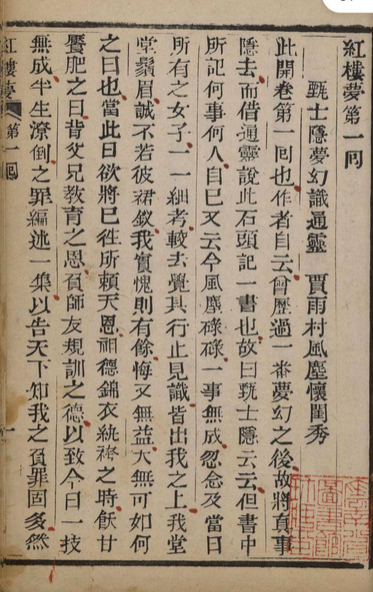 紅樓夢第一囘
甄士隱夢幻識通靈 賈雨村風塵懷閨秀
此開卷第一囘也作者自云曾歷過一番夢幻之後故將眞事
隱去而借通靈說此石頭記一書也故曰甄士隱云云但書中
所記何事何人自己又云今風塵碌碌一事無成忽念及當日
所有之女子一一細考較去覺其行止見識皆出我之上我堂
堂鬚眉誠不若彼裙釵我實愧則有餘悔又無益大無可如何
之日也當此日欲將已徃所頼天恩祖德錦衣紈袴之時飫甘
饜肥之日背父兄教育之恩負師友規訓之德以致今日一技
無成半生潦倒之罪編述一集以告天下知我之負罪固多然
紅樓夢 第一囘 一